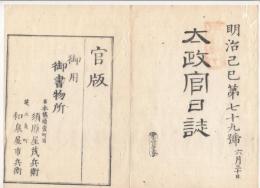 明治己巳第七十九號
六月二十日
太政官日誌
官版
御用
御書物所
須原屋茂兵衛
和泉屋市兵衛